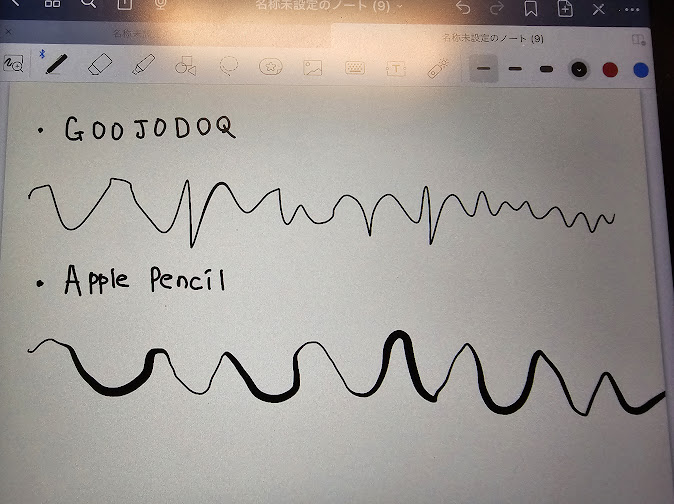 名称未設定のノート (9)
名称未設
名称未設定のノート (9)
・GOOJODOQ
・Apple Pencil